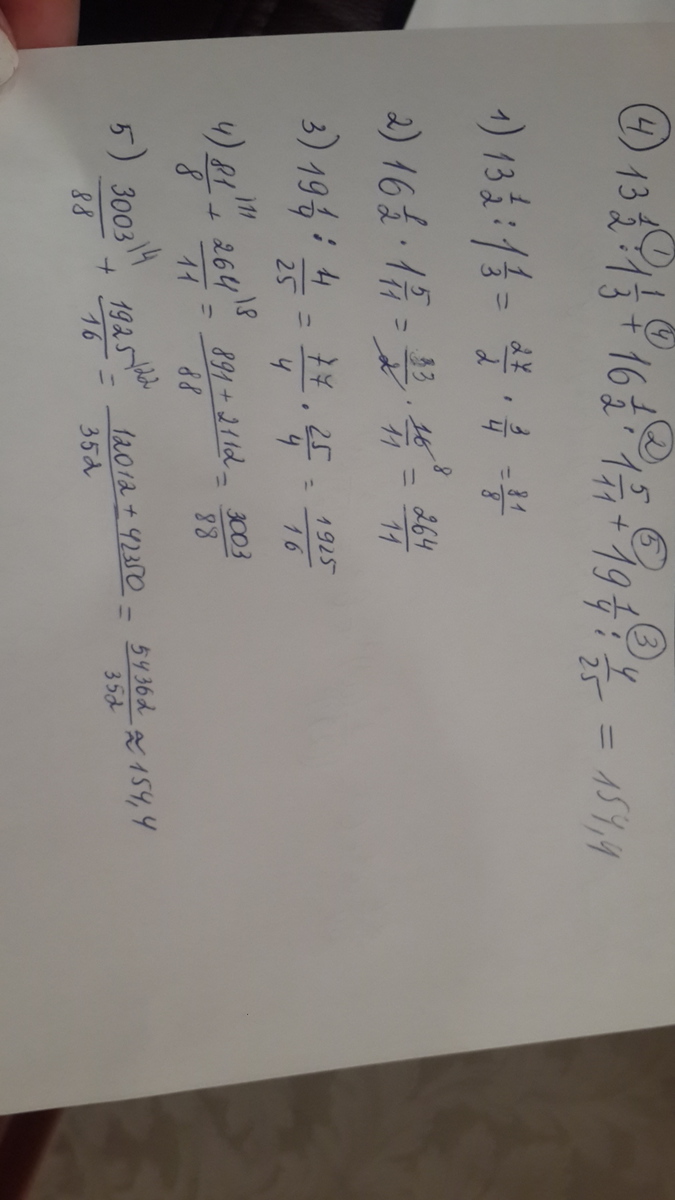 ④ 13 1/2 : 1 1/3 + 16 1/2 · 1 5/11 + 19 1/4 : 4/25 = 154,4
① ④ ② ⑤ ③
1) 13 1/2 : 1 1/3 = 27/2 · 3/4 = 81/8
2) 16 1/2 · 1 5/11 = 33/2 · 16/11 = 264/11
8
3) 19 1/4 : 4/25 = 77/4 · 25/4 = 1925/16
4) 81\11/8 + 264\8/11 = 891+2112/88 = 3003/88
5) 3003\4/88 + 1925\22/16 = 12012+42350/352 = 54362/352 ≈ 154,4